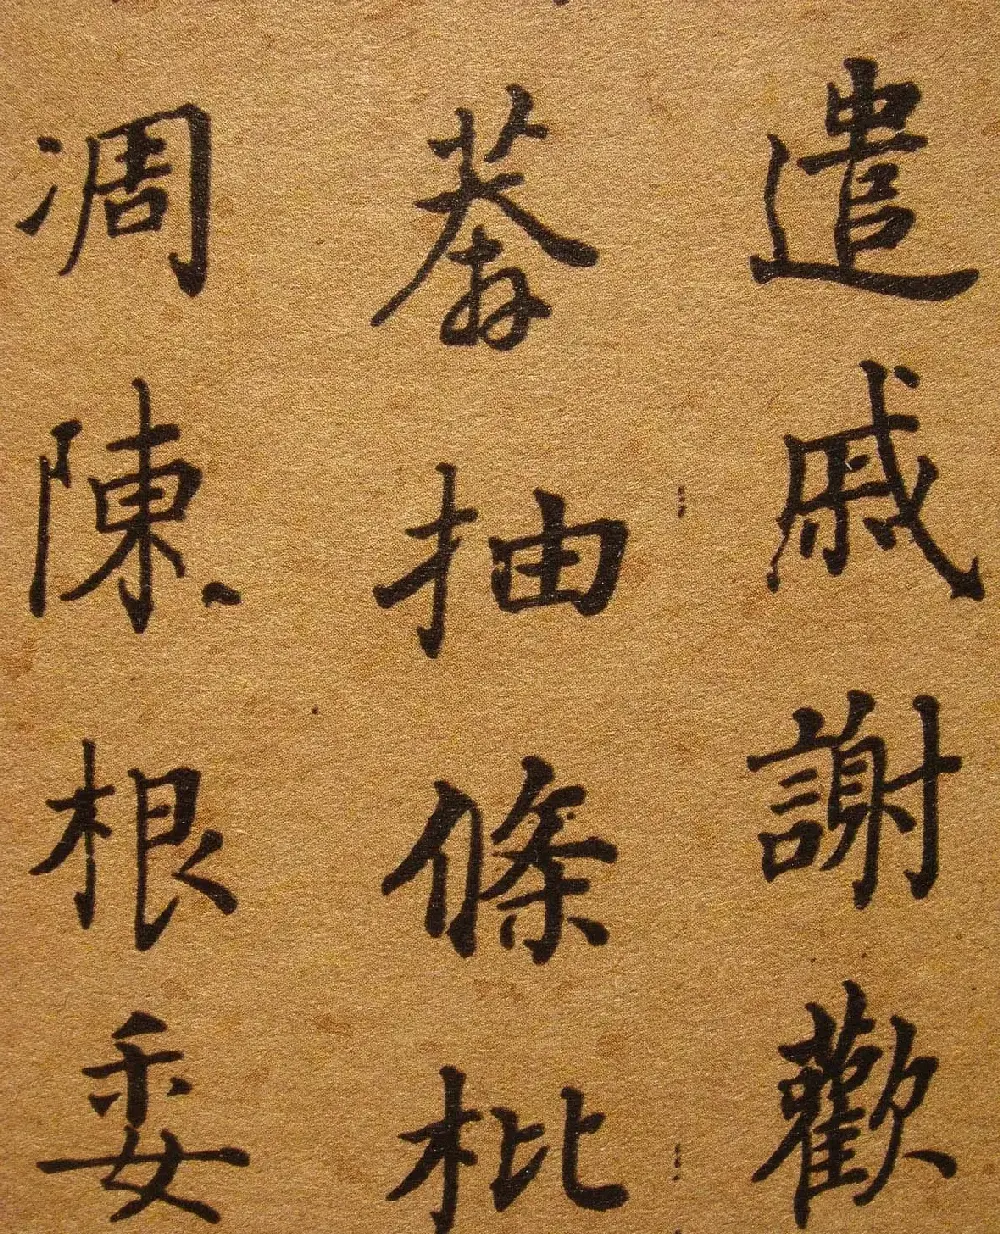 遣戚謝歡
莽抽條枇
凋陳根委